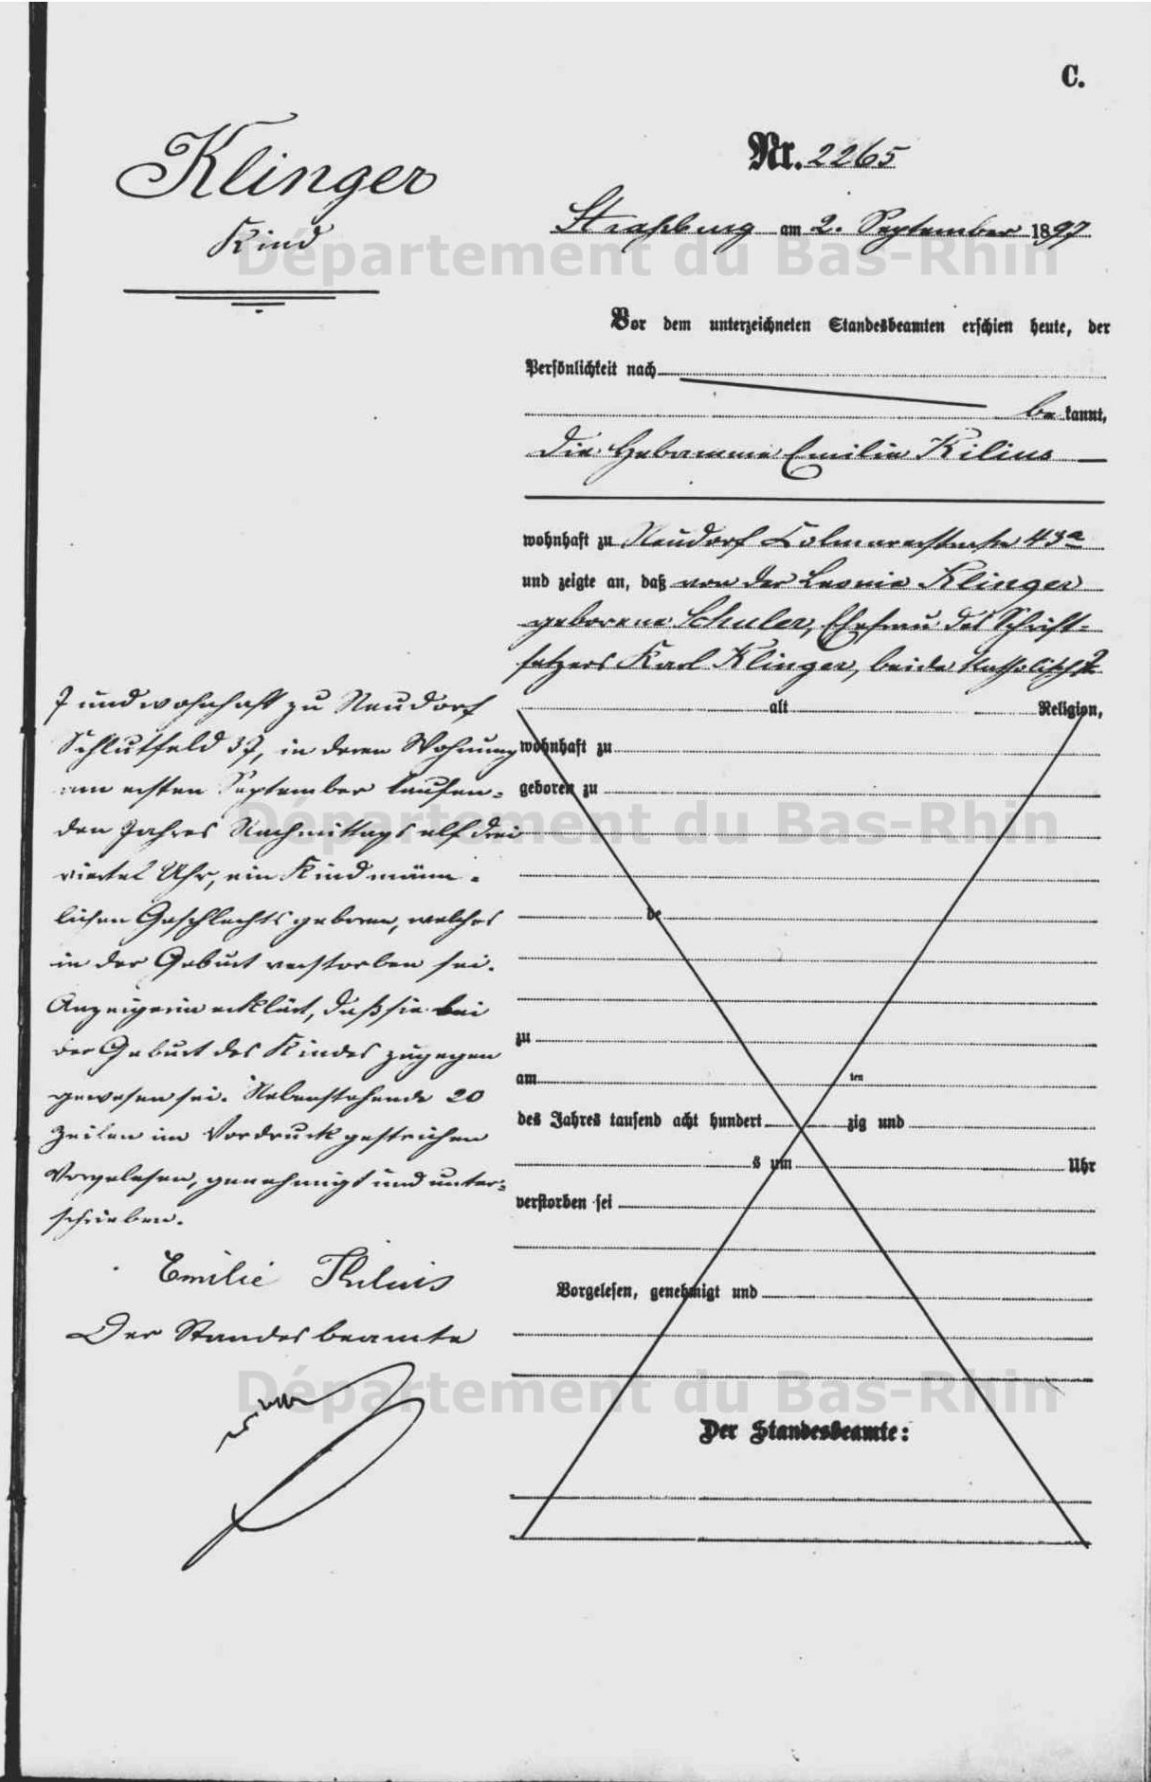 C.
Klinger
Kind
Nr. 2265
Straßburg am 2. September 1897
Vor dem unterzeichneten Standesbeamten erschien heute, der
Persönlichkeit nach
be kannt,
die Hebamme Emilie Kilius
wohnhaft zu Neudorf Colmarerstraße 43a
und zeigte an, daß von der Leonie Klinger
geborene Schuler, Ehefrau des Schrift-
setzers Karl Klinger, beide katholisch
alt Religion,
wohnhaft zu
geboren zu
de
zu
am ten
des Jahres tausend acht hundert zig und
s um Uhr
verstorben sei
Vorgelesen, genehmigt und
Der Standesbeamte:
und wohnhaft zu Neudorf
Schlutfeld 37, in deren Wohnung
am ersten September laufen-
den Jahres Nachmittags elf drei
viertel Uhr, ein Kind männ-
lichen Geschlechts geboren, welches
in der Geburt verstorben sei.
Anzeigerin erklärt, daß sie bei
der Geburt des Kindes zugegen
gewesen sei. Nebenstehende 20
Zeilen im Vordruck gestrichen
Vorgelesen, genehmigt und unter-
schrieben.
Emilie
Der Standesbeamte
Département du Bas-Rhin
Département du Bas-Rhin
Département du Bas-Rhin